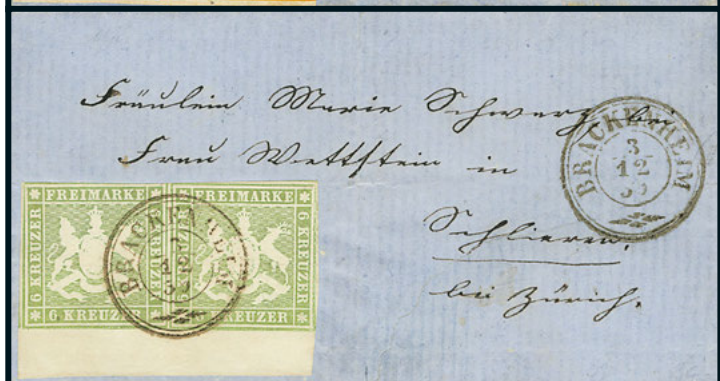 Fräulein Marie Schwarz, bei
Frau Wettstein in
Schlieren,
bei Zürich.
BRACKENHEIM
3
12
FREIMARKE
6 KREUZER
6 KREUZER
FREIMARKE
6 KREUZER
6 KREUZER
BRACKENHEIM
3
12